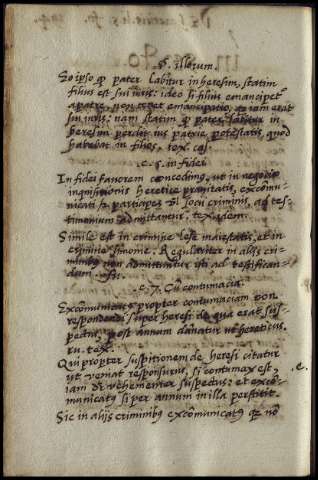 §. illorum.
Eo ipso q̄ pater labitur in heresim, statim
filius est sui iuris: ideo si filius emancipet'
a patre, non tenet emancipatio, q̄ iam erat
sui iuris: nam statim q̄ pater labitur in
heresim perdit ius patriæ potestatis, quod
habebat in filios, tex. est
c. §. in fidei
In fidei favorem conceditur, ut in negotio
inquisitionis heretice pravitatis, excōmu-
nicati & participes vl̄ socii criminis, ad tes-
timonium admittantur, tex. idem.
Simile est in crimine lese maiestatis, et in
crimine simonie. Regulariter in alijs cri-
minibus non admittuntur isti ad testifican-
dum.
c. 7. Cū contumacia.
Excōmunicatus propter contumaciam non
respondendi super heresi de qua erat sus-
pectus, post annum dānatur ut hereticus.
tex.
Qui propter suspitionem de heresi citatur
ut veniat responsurus, si contumax est,
iam d'r vehementer suspectus: et excō-
municatus si per annum in illa perstitit
c.
Sic in alijs criminibus excōmunicatus nō